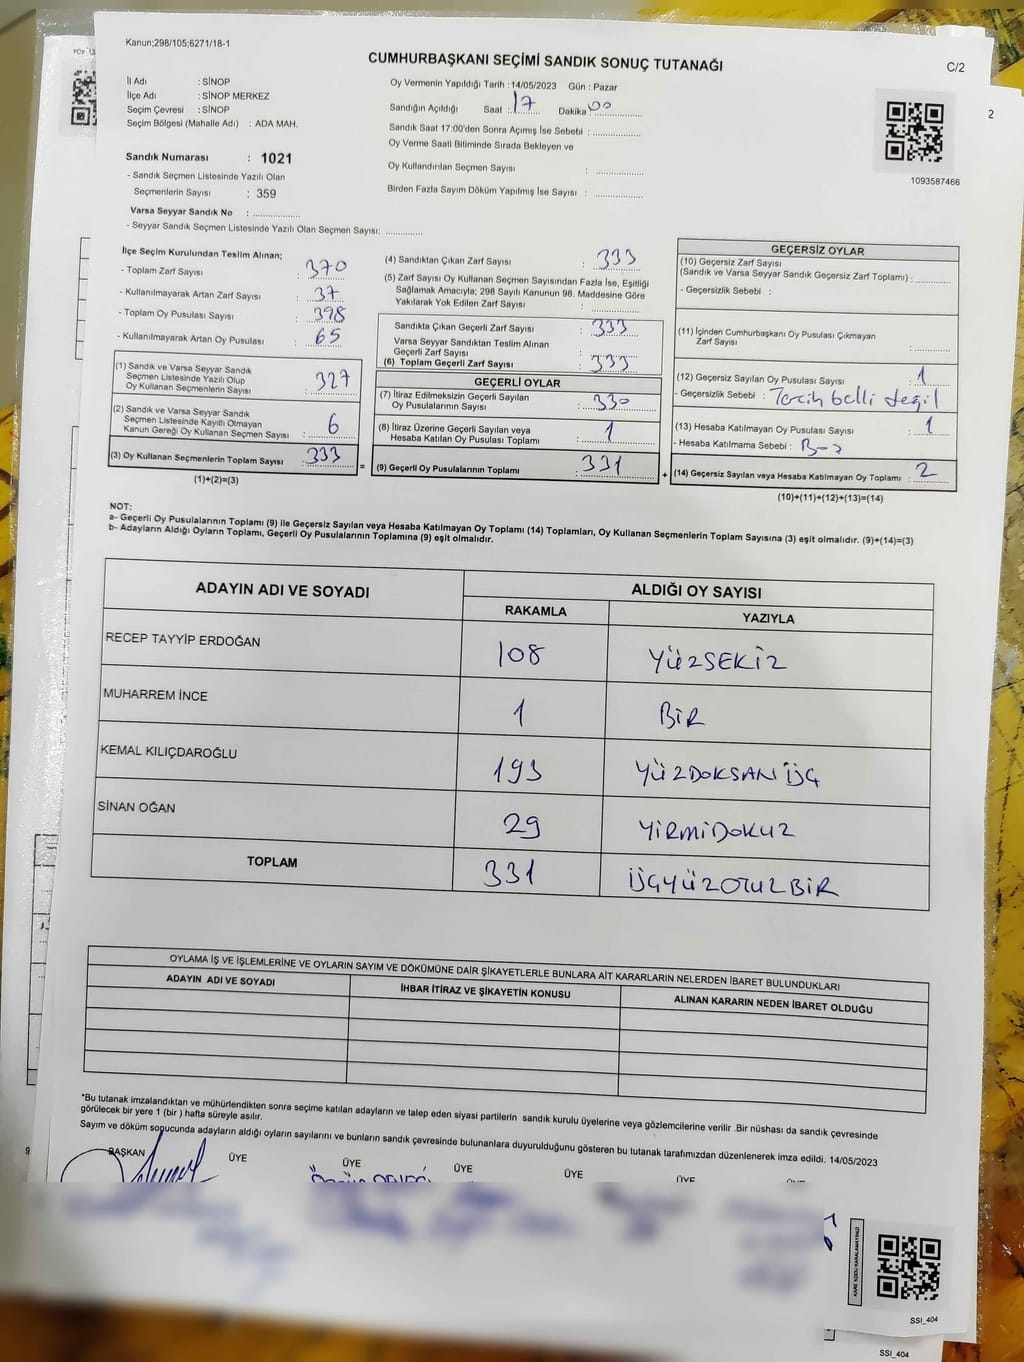 Kanun;298/105;6271/18-1
CUMHURBAŞKANI SEÇİMİ SANDIK SONUÇ TUTANAĞI
C/2
2
İl Adı : SİNOP
İlçe Adı : SİNOP MERKEZ
Seçim Çevresi : SİNOP
Seçim Bölgesi (Mahalle Adı) : ADA MAH.
Sandık Numarası : 1021
- Sandık Seçmen Listesinde Yazılı Olan
Seçmenlerin Sayısı : 359
Varsa Seyyar Sandık No : ..............
- Seyyar Sandık Seçmen Listesinde Yazılı Olan Seçmen Sayısı: ............
Oy Vermenin Yapıldığı Tarih : 14/05/2023 Gün : Pazar
Sandığın Açıldığı Saat : 17 Dakika 00
Sandık Saat 17:00'den Sonra Açımış İse Sebebi : ..............
Oy Verme Saati Bitiminde Sırada Bekleyen ve
Oy Kullandırılan Seçmen Sayısı : ..............
Birden Fazla Sayım Döküm Yapılmış İse Sayısı : ..............
1093587466
İlçe Seçim Kurulundan Teslim Alınan;
- Toplam Zarf Sayısı : 370
- Kullanılmayarak Artan Zarf Sayısı : 37
- Toplam Oy Pusulası Sayısı : 398
- Kullanılmayarak Artan Oy Pusulası : 65
(1) Sandık ve Varsa Seyyar Sandık
Seçmen Listesinde Yazılı Olup
Oy Kullanan Seçmenlerin Sayısı : 327
(2) Sandık ve Varsa Seyyar Sandık
Seçmen Listesinde Kayıtlı Olmayan
Kanun Gereği Oy Kullanan Seçmen Sayısı : 6
(3) Oy Kullanan Seçmenlerin Toplam Sayısı : 333
(1)+(2)=(3)
=
(4) Sandıktan Çıkan Zarf Sayısı : 333
(5) Zarf Sayısı Oy Kullanan Seçmen Sayısından Fazla İse, Eşitliği
Sağlamak Amacıyla; 298 Sayılı Kanunun 98. Maddesine Göre
Yakılarak Yok Edilen Zarf Sayısı : ..............
Sandıkta Çıkan Geçerli Zarf Sayısı : 333
Varsa Seyyar Sandıktan Teslim Alınan
Geçerli Zarf Sayısı : ..............
(6) Toplam Geçerli Zarf Sayısı : 333
GEÇERLİ OYLAR
(7) İtiraz Edilmeksizin Geçerli Sayılan
Oy Pusulalarının Sayısı : 330
(8) İtiraz Üzerine Geçerli Sayılan veya
Hesaba Katılan Oy Pusulası Toplamı : 1
(9) Geçerli Oy Pusulalarının Toplamı : 331
+
GEÇERSİZ OYLAR
(10) Geçersiz Zarf Sayısı
(Sandık ve Varsa Seyyar Sandık Geçersiz Zarf Toplamı) : ............
- Geçersizlik Sebebi :
(11) İçinden Cumhurbaşkanı Oy Pusulası Çıkmayan
Zarf Sayısı : ............
(12) Geçersiz Sayılan Oy Pusulası Sayısı : 1
- Geçersizlik Sebebi : Tercih belli değil
(13) Hesaba Katılmayan Oy Pusulası Sayısı : 1
- Hesaba Katılmama Sebebi :
(14) Geçersiz Sayılan veya Hesaba Katılmayan Oy Toplamı : 2
(10)+(11)+(12)+(13)=(14)
NOT:
a- Geçerli Oy Pusulalarının Toplamı (9) ile Geçersiz Sayılan veya Hesaba Katılmayan Oy Toplamı (14) Toplamları, Oy Kullanan Seçmenlerin Toplam Sayısına (3) eşit olmalıdır. (9)+(14)=(3)
b- Adayların Aldığı Oyların Toplamı, Geçerli Oy Pusulalarının Toplamına (9) eşit olmalıdır.
ADAYIN ADI VE SOYADI
ALDIĞI OY SAYISI
RAKAMLA YAZIYLA
RECEP TAYYİP ERDOĞAN 108 YÜZSEKİZ
MUHARREM İNCE 1 BİR
KEMAL KILIÇDAROĞLU 193 YÜZDOKSAN ÜÇ
SİNAN OĞAN 29 YİRMİDOKUZ
TOPLAM 331 ÜÇYÜZOTUZBİR
OYLAMA İŞ VE İŞLEMLERİNE VE OYLARIN SAYIM VE DÖKÜMÜNE DAİR ŞİKAYETLERLE BUNLARA AİT KARARLARIN NELERDEN İBARET BULUNDUKLARI
ADAYIN ADI VE SOYADI İHBAR İTİRAZ VE ŞİKAYETİN KONUSU ALINAN KARARIN NEDEN İBARET OLDUĞU
*Bu tutanak imzalandıktan ve mühürlendikten sonra seçime katılan adayların ve talep eden siyasi partilerin sandık kurulu üyelerine veya gözlemcilerine verilir .Bir nüshası da sandık çevresinde
görülecek bir yere 1 (bir ) hafta süreyle asılır.
Sayım ve döküm sonucunda adayların aldığı oyların sayılarını ve bunların sandık çevresinde bulunanlara duyurulduğunu gösteren bu tutanak tarafımızdan düzenlenerek imza edildi. 14/05/2023
BAŞKAN ÜYE ÜYE ÜYE ÜYE ÜYE
KARE KODU KARALAMAYINIZ!
SSI_404
SSI_404